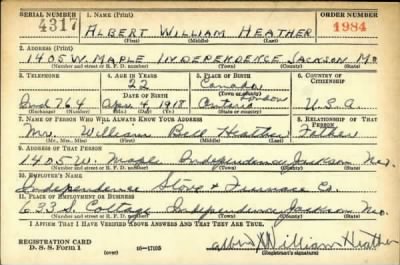 SERIAL NUMBER 1. NAME (Print) ORDER NUMBER
4317 ALBERT WILLIAM HEATHER 1984
(First) (Middle) (Last)
2. ADDRESS (Print)
1405 W. MAPLE INDEPENDENCE JACKSON MO
(Number and street or R. F. D. number) (Town) (County) (State)
3. TELEPHONE 4. AGE IN YEARS 5. PLACE OF BIRTH 6. COUNTRY OF CITIZENSHIP
22 Canada
DATE OF BIRTH London
Ind 764 Apr 4 1918 Ontario U.S.A
(Exchange) (Number) (Mo.) (Day) (Yr.) (State or county)
7. NAME OF PERSON WHO WILL ALWAYS KNOW YOUR ADDRESS 8. RELATIONSHIP OF THAT PERSON
Mr. William Bell Heather Father
(Mr., Mrs., Miss) (First) (Middle) (Last)
9. ADDRESS OF THAT PERSON
1405 W. Maple Independence Jackson Mo.
(Number and street or R. F. D. number) (Town) (County) (State)
10. EMPLOYER'S NAME
Independence Stove & Furnace Co.
11. PLACE OF EMPLOYMENT OR BUSINESS
633 S. Cottage Independence Jackson Mo.
(Number and street or R. F. D. number) (Town) (County) (State)
I AFFIRM THAT I HAVE VERIFIED ABOVE ANSWERS AND THAT THEY ARE TRUE.
REGISTRATION CARD
D. S. S. Form 1 (over) 16—17105 Albert William Heather
(Registrant's signature)